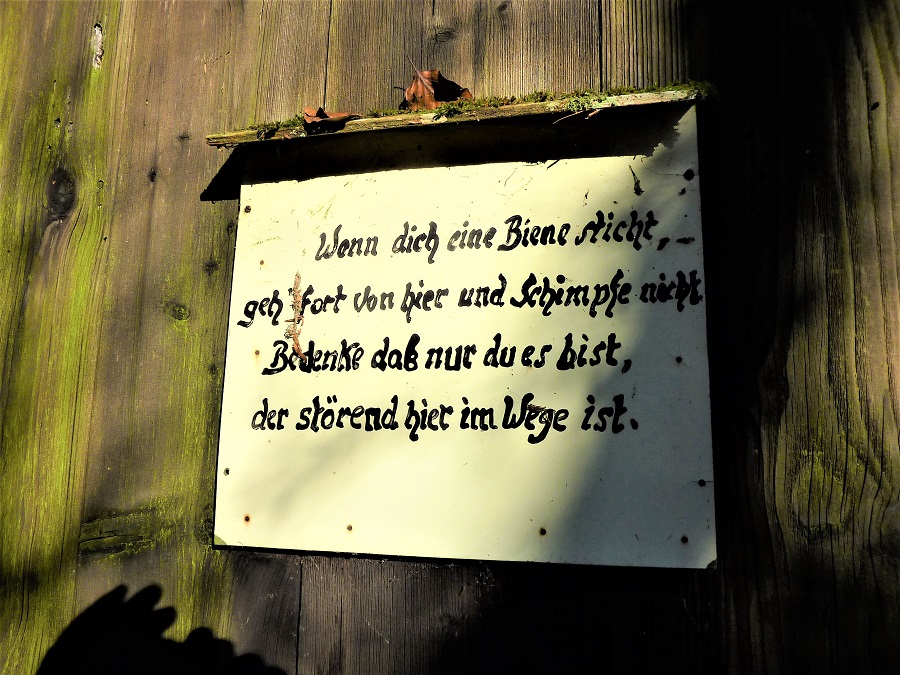 Wenn dich eine Biene sticht,
geh fort von hier und Schimpfe nicht
Bedenke daß nur du es bist,
der störend hier im Wege ist.